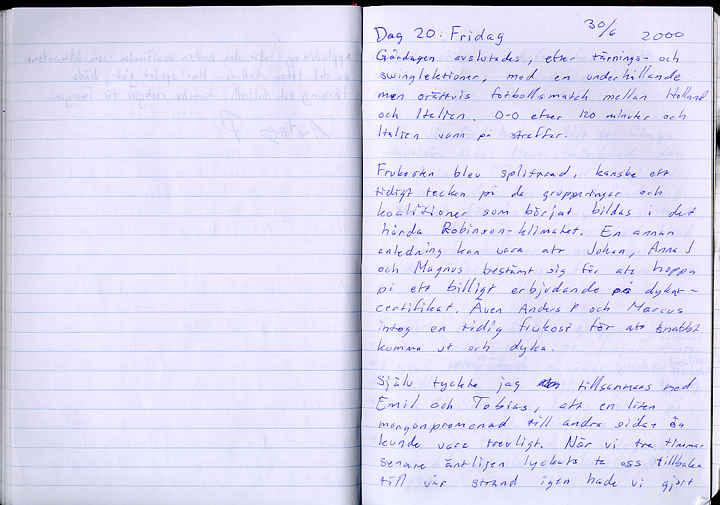 Dag 20: Fridag 30/6 2000
Gårdagen avslutades, efter tärnings- och
swinglektioner, med en underhållande
men orättvis fotbollsmatch mellan Holland
och Italien. 0-0 efter 120 minuter och
Italien vann på straffar.
Frukosten blev splittrad, kanske ett
tidigt tecken på de grupperingar och
koalitioner som börjat bildas i det
hårda Robinson-klimatet. En annan
anledning kan vara att Johan, Anna J
och Magnus bestämt sig för att hoppa
på ett billigt erbjudande på dykar-
certifikat. Även Anders P och Marcus
intog en tidig frukost för att snabbt
komma ut och dyka.
Själv tyckte jag tillsammans med
Emil och Tobias, att en liten
morgonpromenad till andra sidan ön
kunde vara trevligt. När vi tre timmar
senare äntligen lyckats ta oss tillbaka
till vår strand igen hade vi gjort